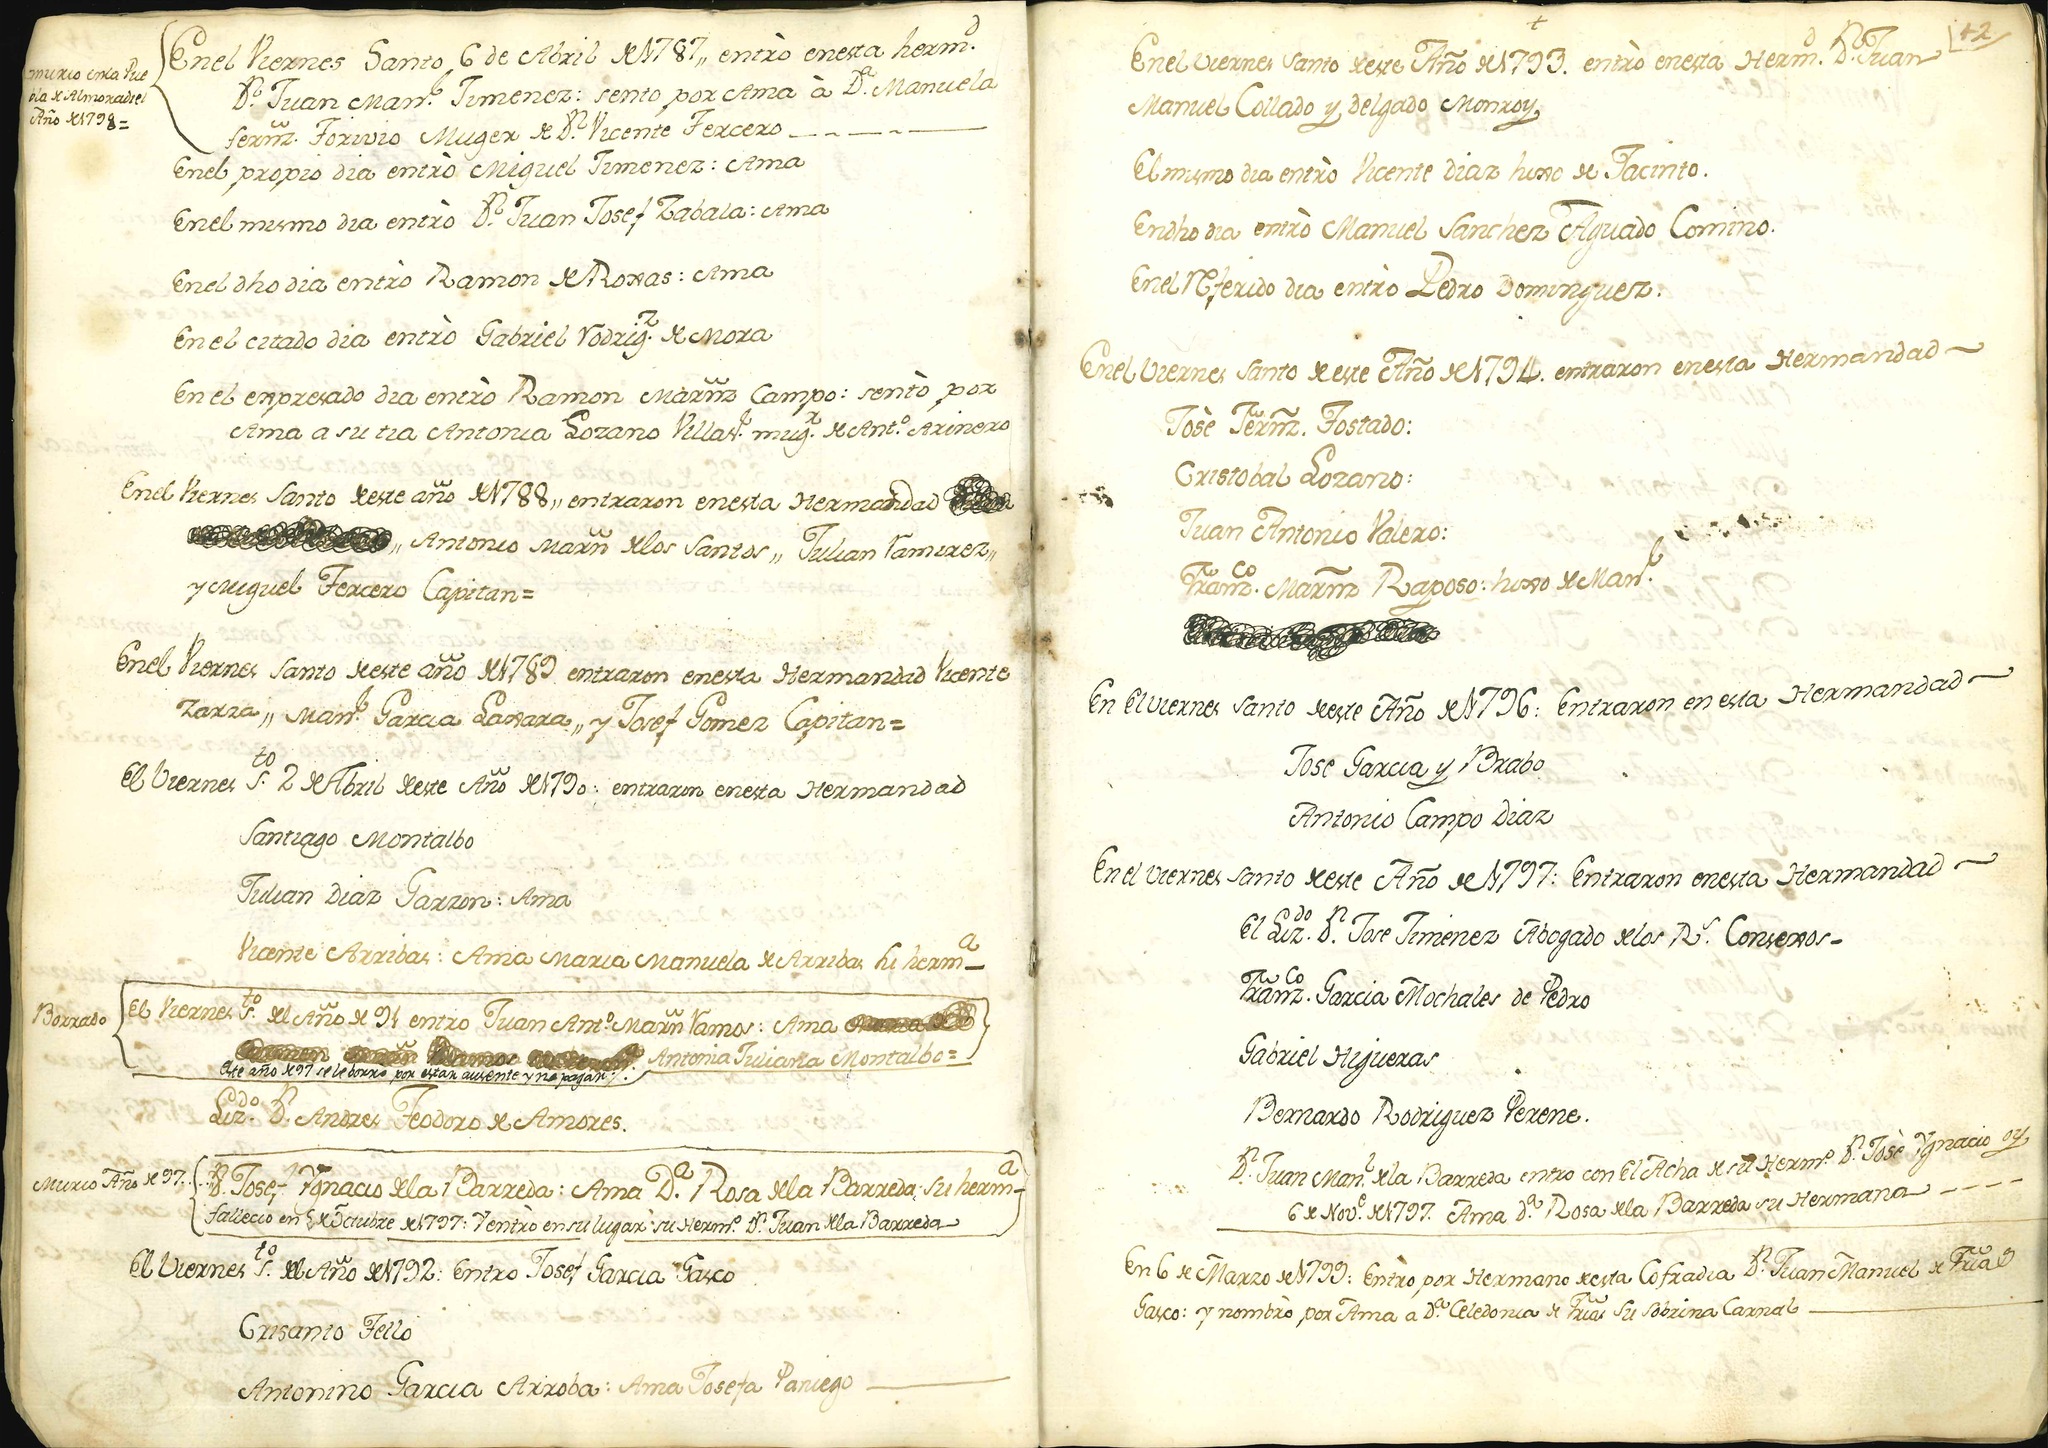 murio en la Pue
bla de Almoradiel
Año de 1798=
En el Viernes Santo 6 de Abril de 1787,, entrò en esta herm.d
D.n Juan Man.l Jimenez: sento por Ama à D.a Manuela
Fernz. Torivio Muger de D.n Vicente Tercero
En el propio dia entrò Miguel Jimenez: Ama
En el mismo dia entrò D.n Juan Josef Zabala: Ama
En el dho dia entrò Ramon de Roxas: Ama
En el citado dia entrò Gabriel Rodrig.z de Mora
En el expresado dia entrò Ramon Marñz Campo: sentò por
Ama a su tia Antonia Lozano Villas.r mug.r de Ant.o Arinero
En el Viernes Santo de este año de 1788,, entraron en esta Hermandad
,, Antonio Marñ de los Santos ,, Julian Ramirez,,
y Miguel Tercero Capitan=
En el Viernes Santo de este año de 1789 entraron en esta Hermandad Vicente
Zarza,, Man.l Garcia Laxara,, y Josef Gomez Capitan=
El Viernes S.to 2 de Abril de este Año de 1790: entraron en esta Hermandad
Santiago Montalbo
Julian Diaz Garzon: Ama
Vicente Arribas: Ama Maria Manuela de Arribas hi herm.a
Borrado
El Viernes S.to del Año de 91 entro Juan Ant.o Marñ Ramos: Ama
Antonia Juliana Montalbo=
Este año de 97 se le borro por estar ausente y no pagar:
Liz.do D.n Andres Teodoro de Amores.
Murio Año de 97.
D.n Josef Ygnacio de la Barreda: Ama D.a Rosa de la Barreda su herm.a
falleciò en 5 de Octubre de 1797: Y entrò en su lugar su Herm.o D.n Juan de la Barreda
El Viernes S.to del Año de 1792: Entro Josef Garcia Gasco
Crisanto Tello
Antonino Garcia Arroba: Ama Josefa Paniego
+
42
En el Viernes Santo de este Año de 1793. entrò en esta Herm.d D.n Juan
Manuel Collado y Delgado Monroy.
El mismo dia entrò Vicente Diaz hixo de Jacinto.
En dho dia entrò Manuel Sanchez Aguado Comino.
En el Referido dia entrò Pedro Dominguez.
En el Viernes Santo de este Año de 1794. entraron en esta Hermandad
Josè Fernz. Tostado:
Cristobal Lozano:
Juan Antonio Valero:
Franz.co Marñz Raposo: hixo de Man.l
En El Viernes Santo de este Año de 1796: Entraron en esta Hermandad
Jose Garcia y Brabo
Antonio Campo Diaz
En el Viernes Santo de este Año de 1797: Entraron en esta Hermandad
El Liz.do D.n Jose Jimenez Abogado de los R.s Consexos
Franz.co Garcia Mochales de Pedro
Gabriel Higueras
Bernardo Rodriguez Perene.
D.n Juan Man.l de la Barreda entro con El Acha de su Herm.o D.n Josè Ygnacio oy
6 de Nov.e de 1797. Ama D.a Rosa de la Barreda su Hermana
En 6 de Marzo de 1799: Entrò por Hermano de esta Cofradia D.n Juan Manuel de Frias
Gasco: y nombrò por Ama a D.a Celedonia de Frias Su Sobrina Carnal